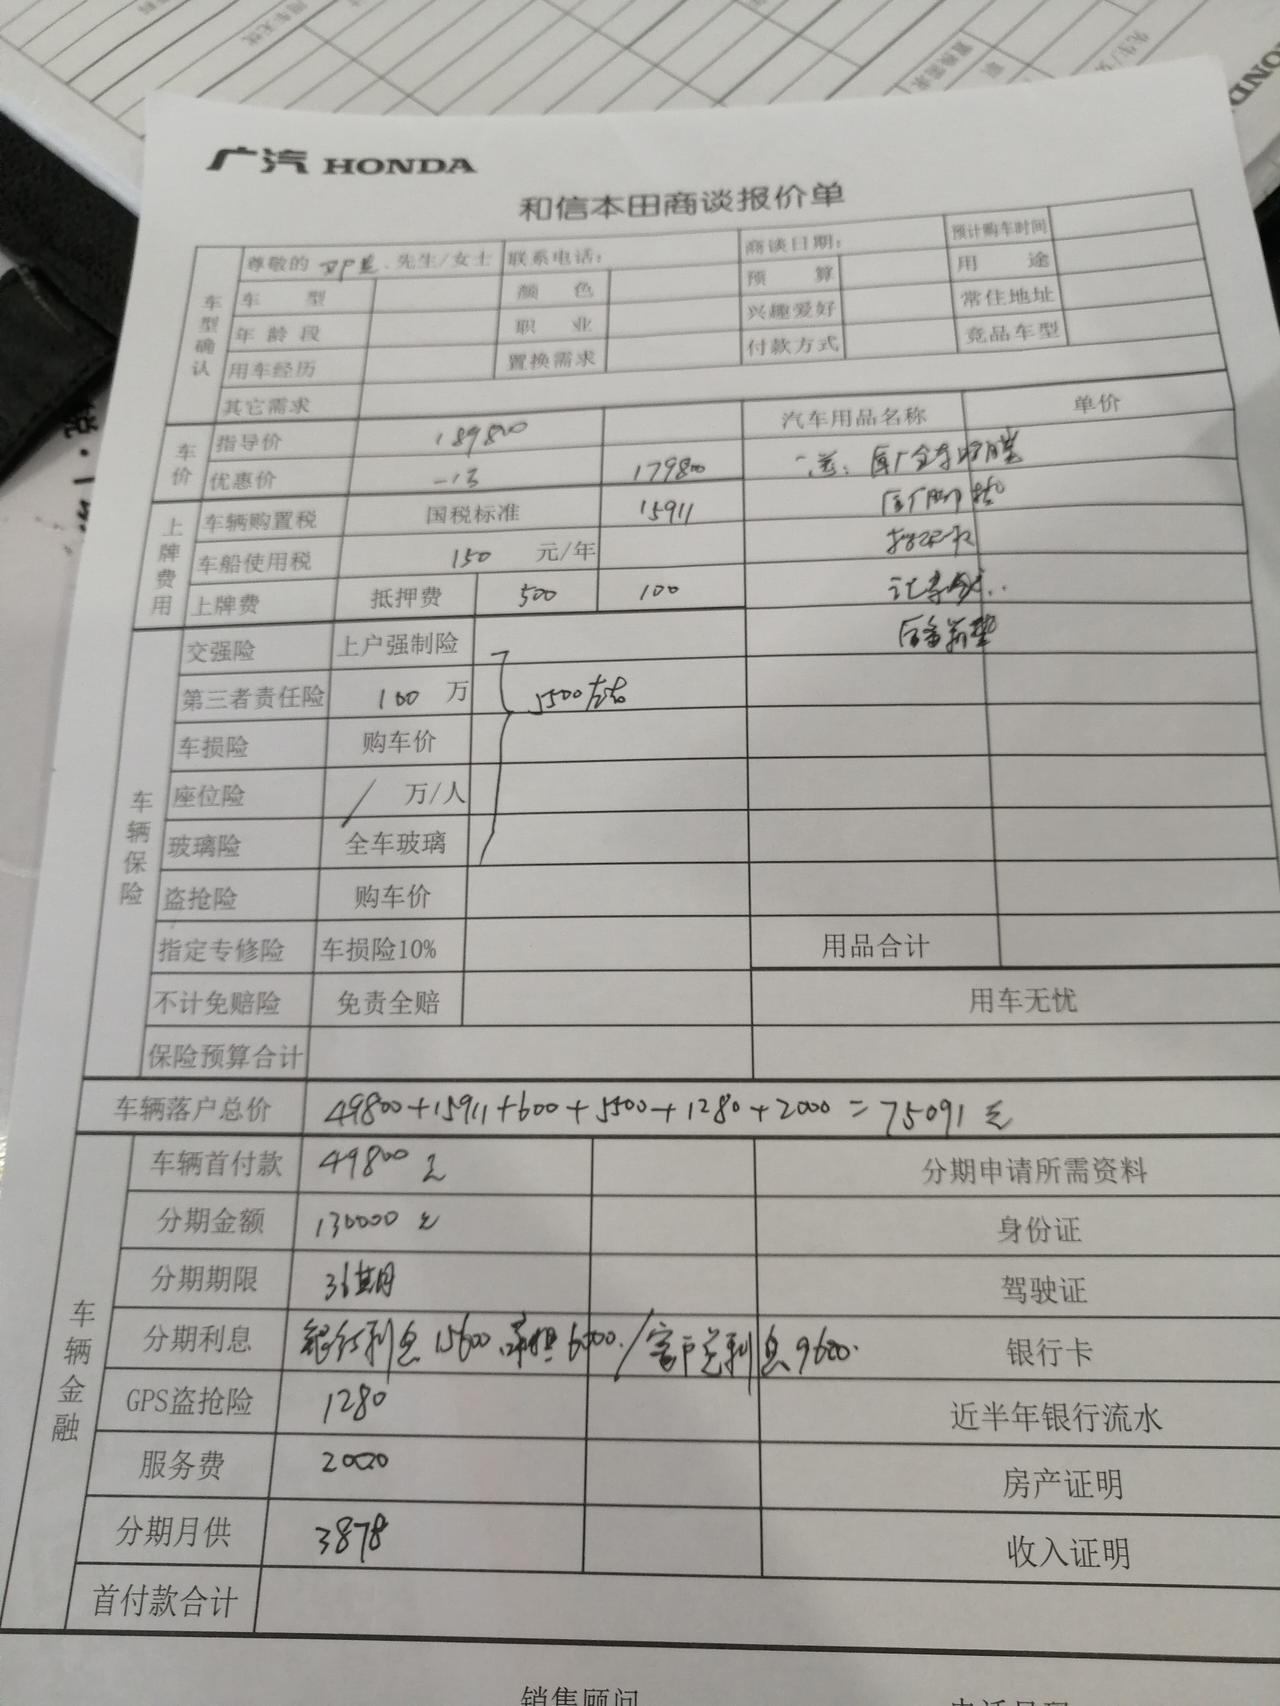 广汽 HONDA
和信本田商谈报价单
车型确认
尊敬的 先生/女士 联系电话: 商谈日期: 预计购车时间
车型 颜色 预算 用途
年龄段 职业 兴趣爱好 常住地址
用车经历 置换需求 付款方式 竞品车型
其它需求
车价
指导价 189800 汽车用品名称 单价
优惠价 -1万 179800 送:原厂全车
上牌费用
车辆购置税 国税标准 15911
车船使用税 150 元/年
上牌费 抵押费 500 100
车辆保险
交强险 上户强制险
第三者责任险 100 万 5500左右
车损险 购车价
座位险 / 万/人
玻璃险 全车玻璃
盗抢险 购车价
指定专修险 车损险10% 用品合计
不计免赔险 免责全赔 用车无忧
保险预算合计
车辆落户总价 49800+15911+600+5500+1280+2000=75091元
车辆金融
车辆首付款 49800元 分期申请所需资料
分期金额 130000元 身份证
分期期限 36期 驾驶证
分期利息 银行利息15600.承担6000./客户总利息9600. 银行卡
GPS盗抢险 1280 近半年银行流水
服务费 2000 房产证明
分期月供 3878 收入证明
首付款合计
销售顾问